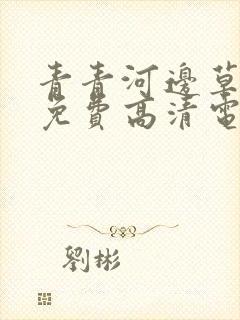 青青河邊草
免費高清電
劉彬